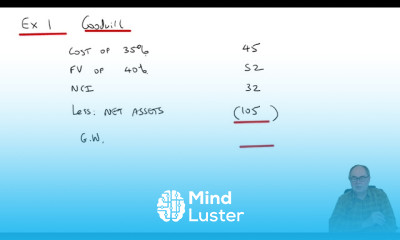 Ex 1 Goodwill
COST OF 35% 45
FV OF 40% 52
NCI 32
LESS: NET ASSETS (105)
G.W.
Mind
Luster